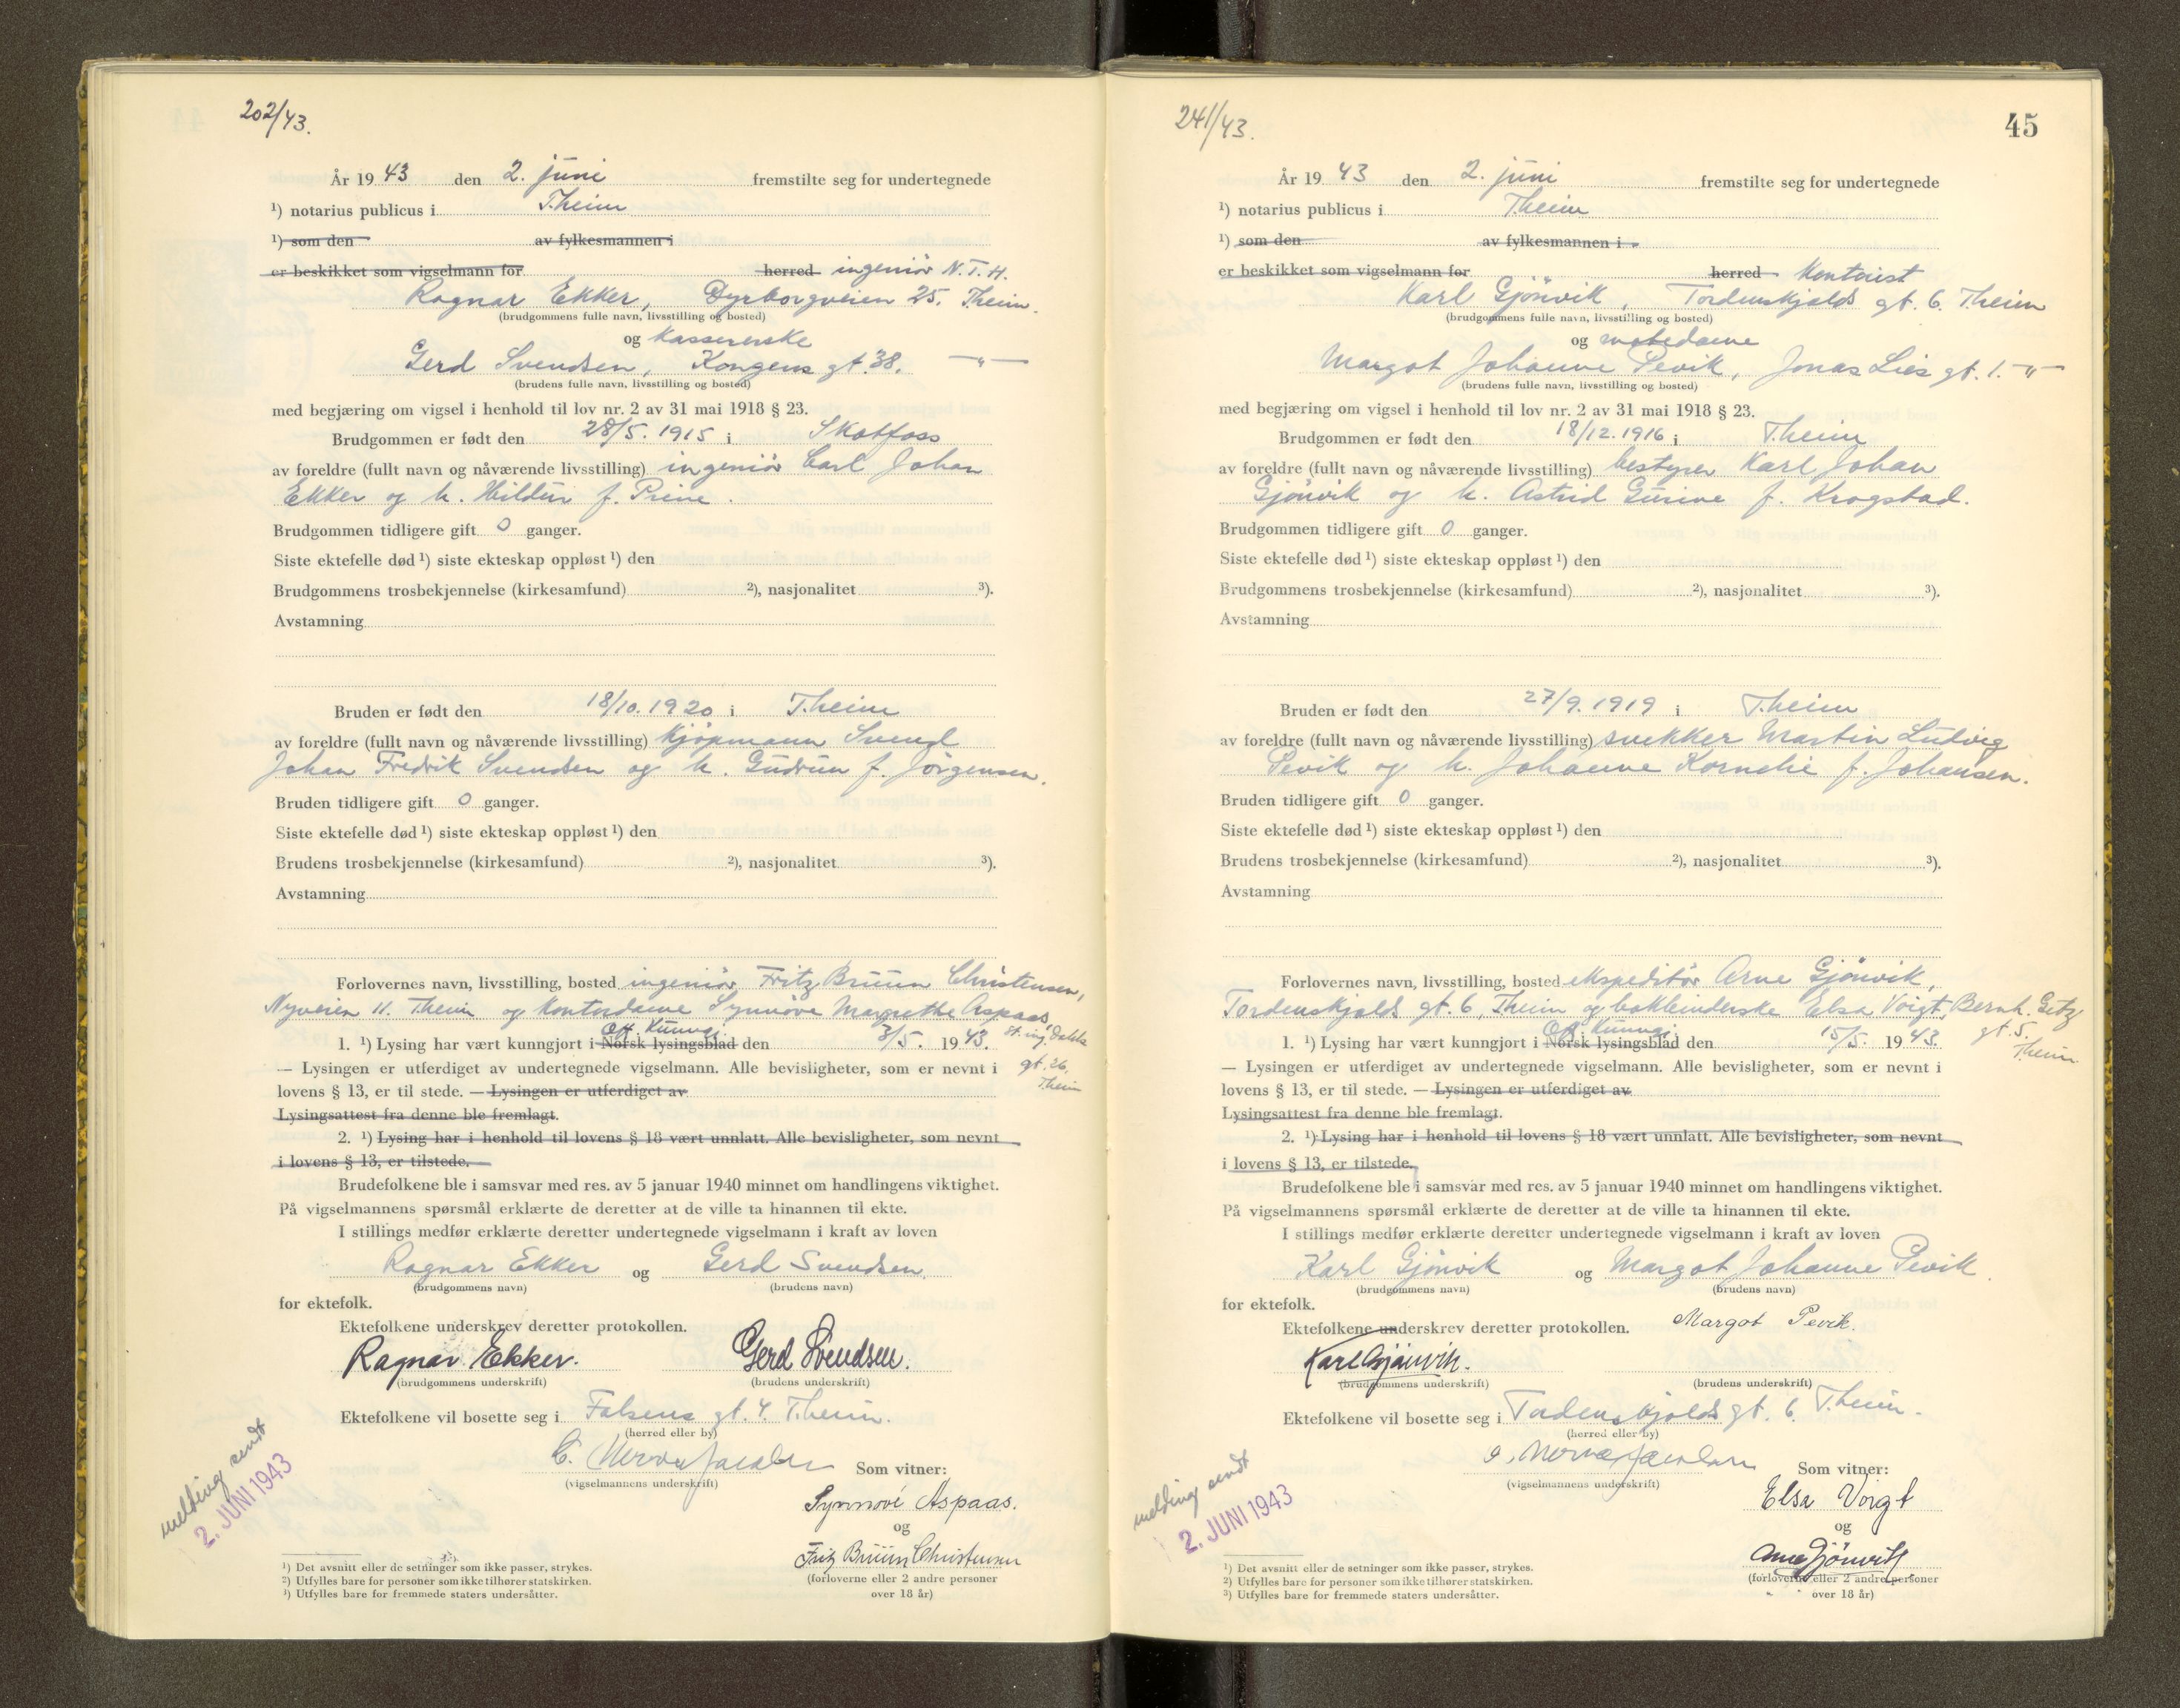 202/43.
År 19 43 den 2. juni fremstilte seg for undertegnede
¹) notarius publicus i T.heim
¹) som den av fylkesmannen i
er beskikket som vigselmann for herred ingeniör N.T.H.
Ragnar Ekker, Dyrborgveien 25. Theim.
(brudgommens fulle navn, livsstilling og bosted)
og kassererske
Gerd Svendsen, Kongens gt. 38. — " —
(brudens fulle navn, livsstilling og bosted)
med begjæring om vigsel i henhold til lov nr. 2 av 31 mai 1918 § 23.
Brudgommen er født den 28/5. 1915 i Skotfoss
av foreldre (fullt navn og nåværende livsstilling) ingeniör Carl Johan
Ekker og h. Hildur f.
Brudgommen tidligere gift 0 ganger.
Siste ektefelle død ¹) siste ekteskap oppløst ¹) den
Brudgommens trosbekjennelse (kirkesamfund) ²), nasjonalitet ³).
Avstamning
Bruden er født den 18/10. 1920 i T.heim
av foreldre (fullt navn og nåværende livsstilling) kjöpmann Svend
Johan Fredrik Svendsen og h. Gudrun f. Jörgensen.
Bruden tidligere gift 0 ganger.
Siste ektefelle død ¹) siste ekteskap oppløst ¹) den
Brudens trosbekjennelse (kirkesamfund) ²), nasjonalitet ³).
Avstamning
Forlovernes navn, livsstilling, bosted ingeniör Fritz Bruun Christensen,
Nyveien 11. Theim og kontordame Synnöve Margrethe Aspaas,
Off. Kunngj. St.ing. Dahls
1. ¹) Lysing har vært kunngjort i Norsk lysingsblad den 3/5. 19 43.
gt. 26.
— Lysingen er utferdiget av undertegnede vigselmann. Alle bevisligheter, som er nevnt i
Theim
lovens § 13, er til stede. — Lysingen er utferdiget av
Lysingsattest fra denne ble fremlagt.
2. ¹) Lysing har i henhold til lovens § 18 vært unnlatt. Alle bevisligheter, som nevnt
i lovens § 13, er tilstede.
Brudefolkene ble i samsvar med res. av 5 januar 1940 minnet om handlingens viktighet.
På vigselmannens spørsmål erklærte de deretter at de ville ta hinannen til ekte.
I stillings medfør erklærte deretter undertegnede vigselmann i kraft av loven
Ragnar Ekker og Gerd Svendsen.
(brudgommens navn) (brudens navn)
for ektefolk.
Ektefolkene underskrev deretter protokollen.
Ragnar Ekker. Gerd Svendsen.
(brudgommens underskrift) (brudens underskrift)
Ektefolkene vil bosette seg i Falsens gt. 4. T.heim.
(herred eller by)
Som vitner:
(vigselmannens underskrift)
Synnové Aspaas.
og
Fritz Bruun Christensen
(forloverne eller 2 andre personer
over 18 år)
melding sendt
2. JUNI 1943
¹) Det avsnitt eller de setninger som ikke passer, strykes.
²) Utfylles bare for personer som ikke tilhører statskirken.
³) Utfylles bare for fremmede staters undersåtter.
241/43.
45
År 19 43 den 2. juni fremstilte seg for undertegnede
¹) notarius publicus i T.heim
¹) som den av fylkesmannen i
er beskikket som vigselmann for herred Kontorist
Karl Gjönvik, Tordenskjolds gt. 6. Theim
(brudgommens fulle navn, livsstilling og bosted)
og motedame
Margot Johanne Pevik, Jonas Lies gt. 1. — " —
(brudens fulle navn, livsstilling og bosted)
med begjæring om vigsel i henhold til lov nr. 2 av 31 mai 1918 § 23.
Brudgommen er født den 18/12. 1916 i T.heim
av foreldre (fullt navn og nåværende livsstilling) bestyrer Karl Johan
Gjönvik og h. Astrid Gurine f. Krogstad.
Brudgommen tidligere gift 0 ganger.
Siste ektefelle død ¹) siste ekteskap oppløst ¹) den
Brudgommens trosbekjennelse (kirkesamfund) ²), nasjonalitet ³).
Avstamning
Bruden er født den 27/9. 1919 i T.heim
av foreldre (fullt navn og nåværende livsstilling) snekker Martin Ludvig
Pevik og h. Johanne Kornelie f. Johansen.
Bruden tidligere gift 0 ganger.
Siste ektefelle død ¹) siste ekteskap oppløst ¹) den
Brudens trosbekjennelse (kirkesamfund) ²), nasjonalitet ³).
Avstamning
Forlovernes navn, livsstilling, bosted ekspeditör Arne Gjönvik,
Tordenskjolds gt. 6, Theim og bokbinderske Elsa Voigt, Bernh. Getz
Off. Kunngj. gt. 5.
1. ¹) Lysing har vært kunngjort i Norsk lysingsblad den 15/5. 19 43.
Theim
— Lysingen er utferdiget av undertegnede vigselmann. Alle bevisligheter, som er nevnt i
lovens § 13, er til stede. — Lysingen er utferdiget av
Lysingsattest fra denne ble fremlagt.
2. ¹) Lysing har i henhold til lovens § 18 vært unnlatt. Alle bevisligheter, som nevnt
i lovens § 13, er tilstede.
Brudefolkene ble i samsvar med res. av 5 januar 1940 minnet om handlingens viktighet.
På vigselmannens spørsmål erklærte de deretter at de ville ta hinannen til ekte.
I stillings medfør erklærte deretter undertegnede vigselmann i kraft av loven
Karl Gjönvik og Margot Johanne Pevik.
(brudgommens navn) (brudens navn)
for ektefolk.
Ektefolkene underskrev deretter protokollen. Margot Pevik.
Karl Gjönvik.
(brudgommens underskrift) (brudens underskrift)
Ektefolkene vil bosette seg i Tordenskjolds gt. 6. T.heim.
(herred eller by)
Som vitner:
(vigselmannens underskrift)
Elsa Voigt
og
Arne Gjönvik
(forloverne eller 2 andre personer
" " over 18 år)
melding sendt
2. JUNI 1943
¹) Det avsnitt eller de setninger som ikke passer, strykes.
2) Utfylles bare for personer som ikke tilhører statskirken.
³) Utfylles bare for fremmede staters undersåtter.